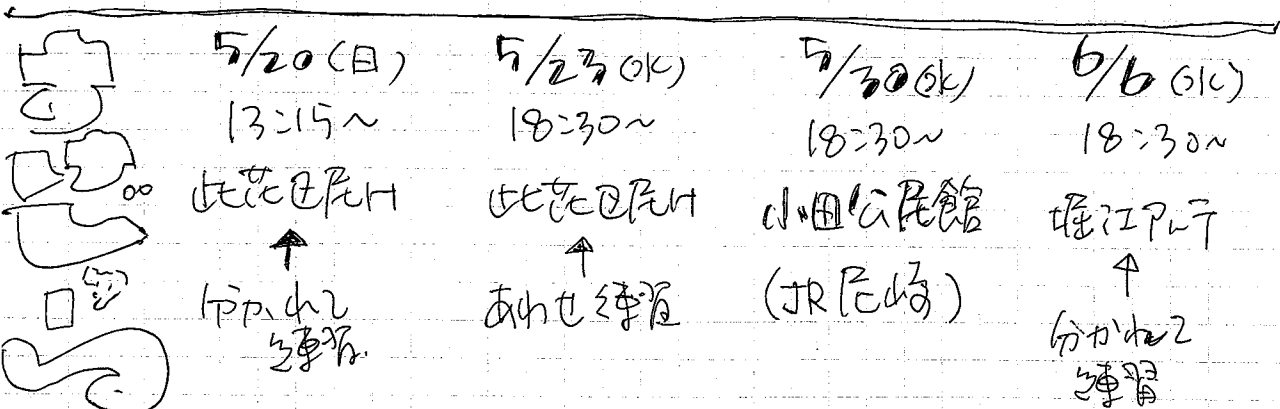 5/20(日)
13:15~
此花区民H
↑
分かれて
練習.
5/23(水)
18:30~
此花区民H
↑
あわせ練習
5/30(水)
18:30~
小田公民館
(JR尼崎)
6/6(水)
18:30~
堀江アルテ
↑
分かれて
練習